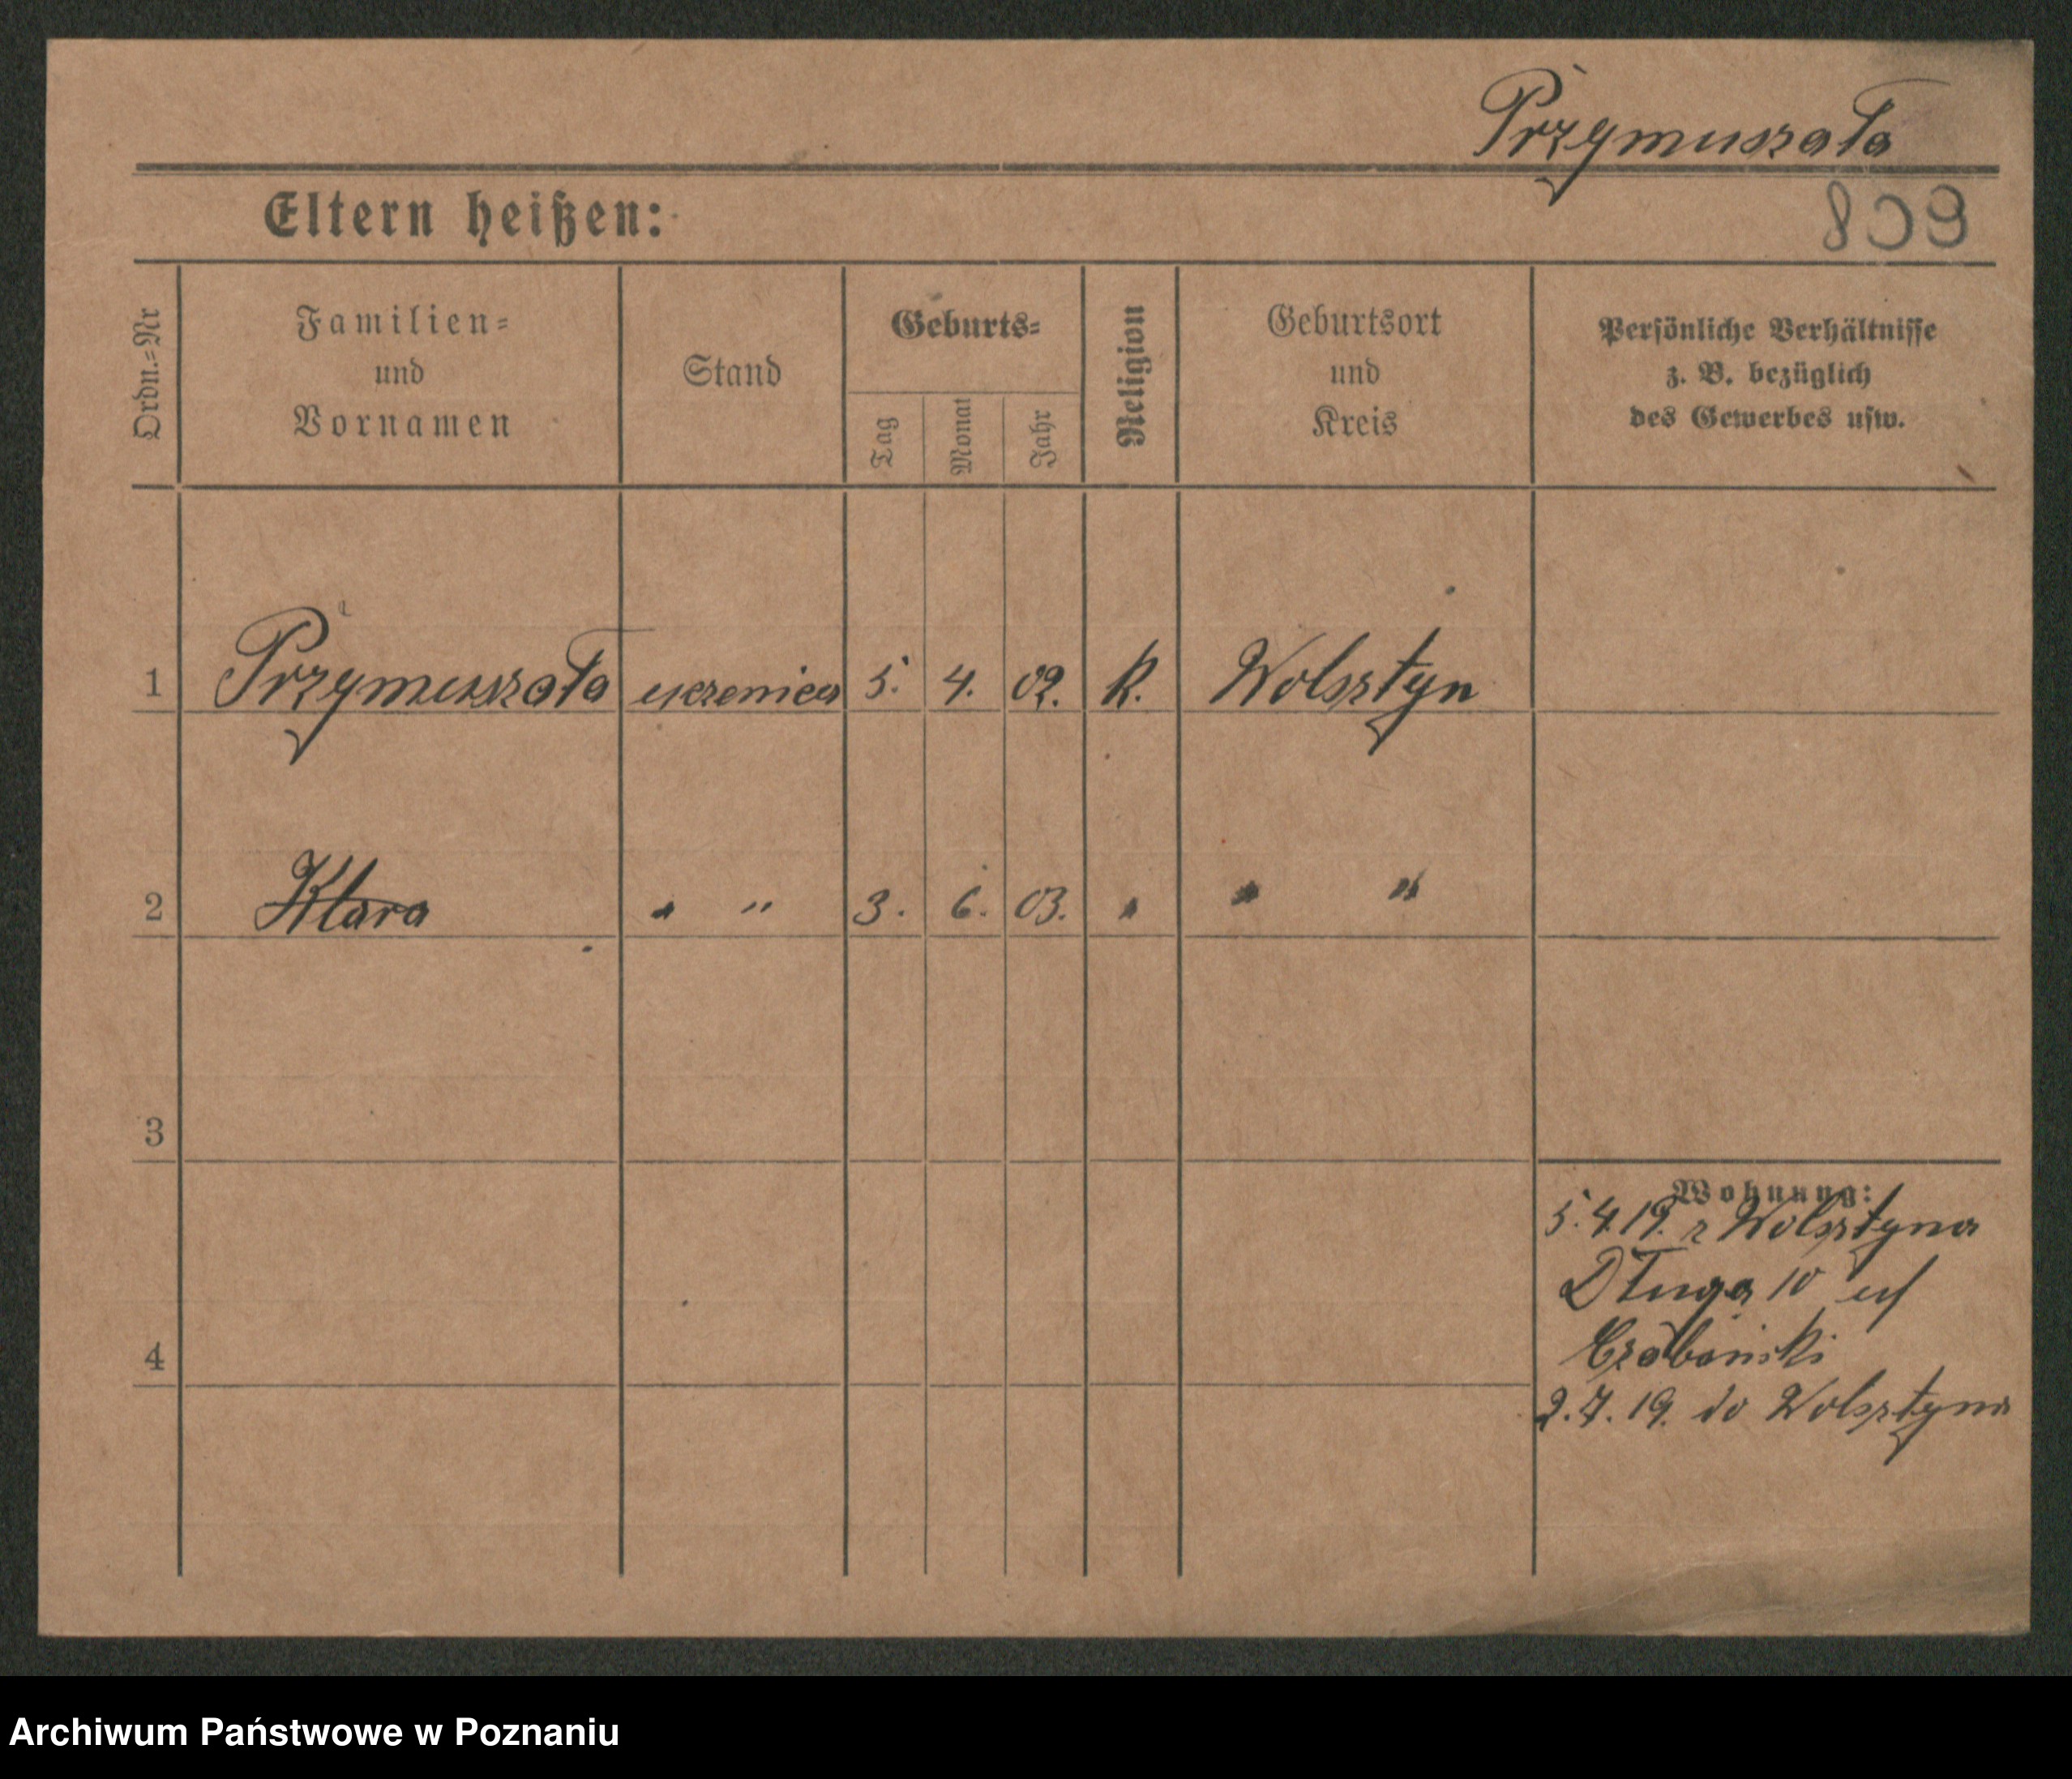 Przymuszała
809
Eltern heißen:
Ordn.-Nr
Familien-
und
Vornamen
Stand
Geburts-
Tag
Monat
Jahr
Religion
Geburtsort
und
Kreis
Persönliche Verhältnisse
z. B. bezüglich
des Gewerbes usw.
1 Przymuszała uczenica 5. 4. 02. K. Wolsztyn
2 Klara " " 3. 6. 03. " " "
3
4
Wohnung:
5.4.19. z Wolsztyna
Długa 10 uf
2.7.19. do Wolsztyna
Archiwum Państwowe w Poznaniu